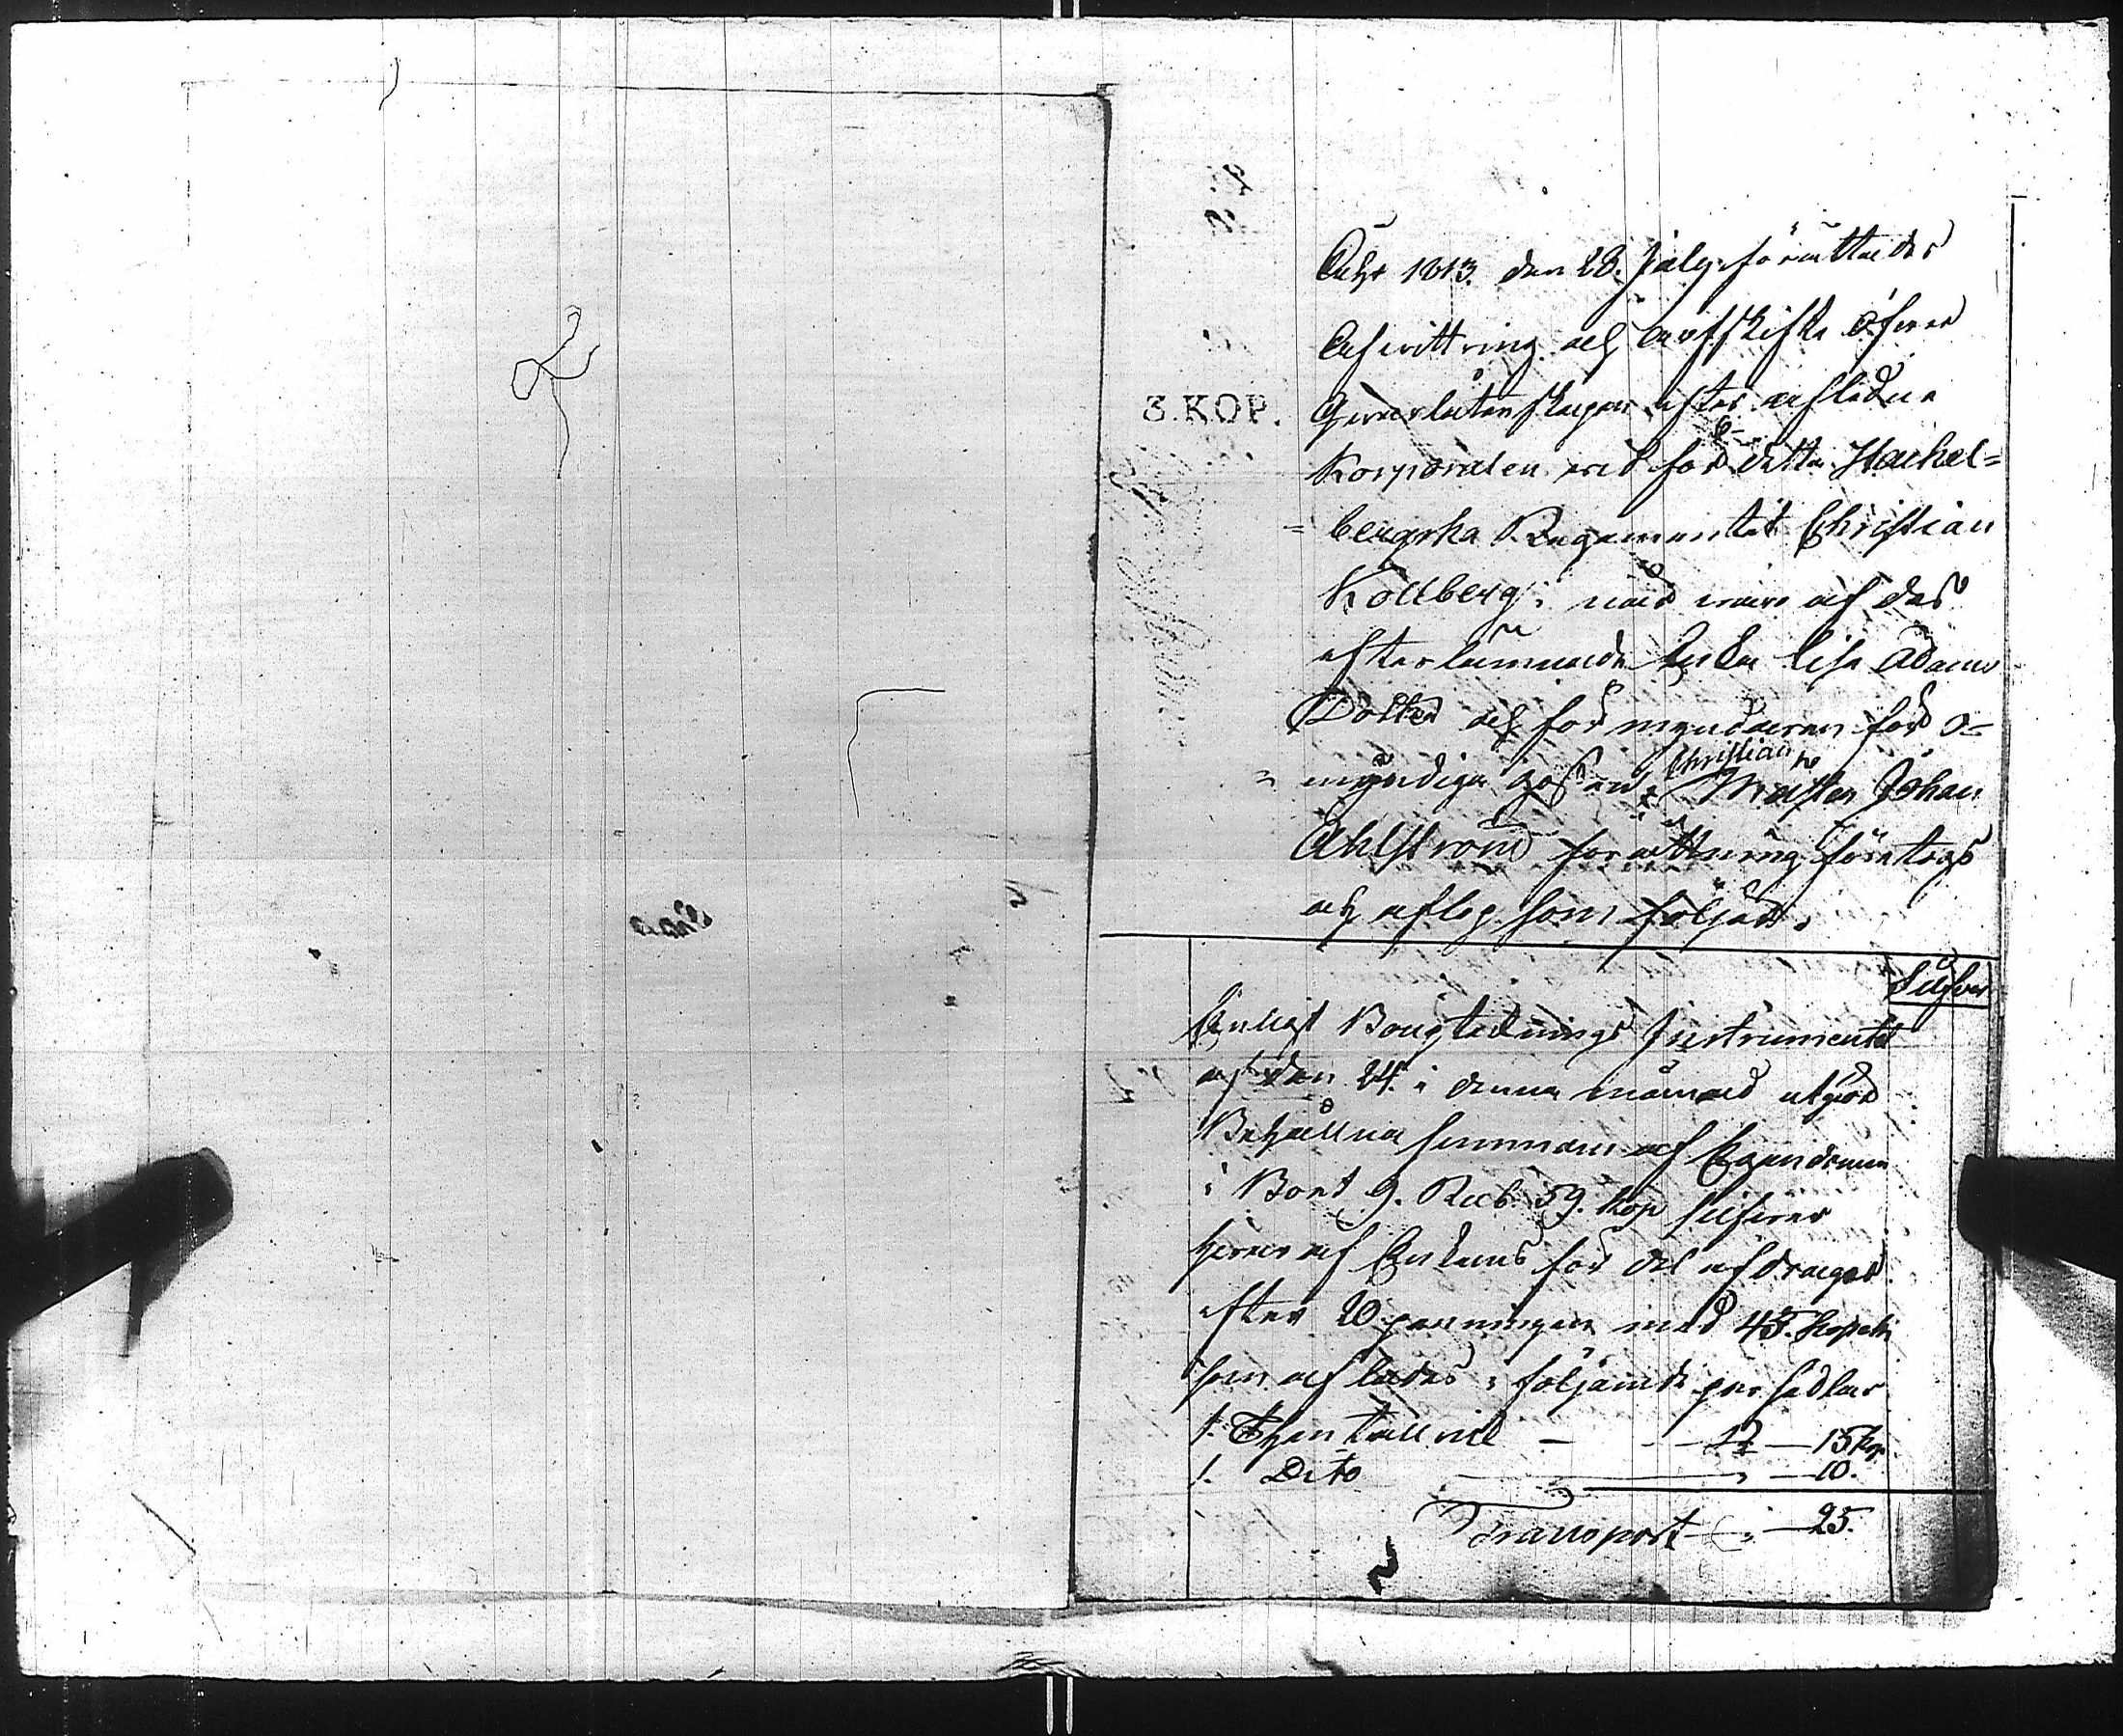 Åhr 1813. den 28. July förättades
Afvittring och arfskifte öfver
3. KOP.
Qvarlåtenskapen efter afledne
Korporalen vid för detta Hachel=
=bergska Regementet Christian
Kollberg; uti närvaro af des
efterlämnade Enka Lisa Adams
Dotter och förmyndaren för o=
=myndiga gossen Christian Mäster Johan
Ahlström förättning företogs
och aflop som följer.
Silfver
Enligt Bougtecknings Instrumentet
af den 24. i denna månad utgör
Behållna summan af Egendomen
i Bont 9. Rub. 59. kop Silfver
hvaraf Enkans fördel afdrages
efter 20 penningen med 43. kopek
som aflades i följande persedlar
1. Then tallrik — 15 kop
1. Dito — 10.
Transport — 25.